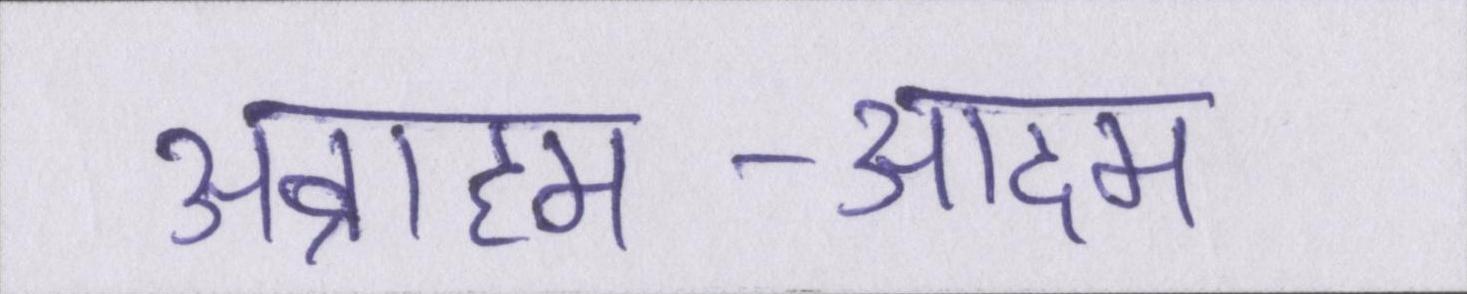 अब्राहम -आदम